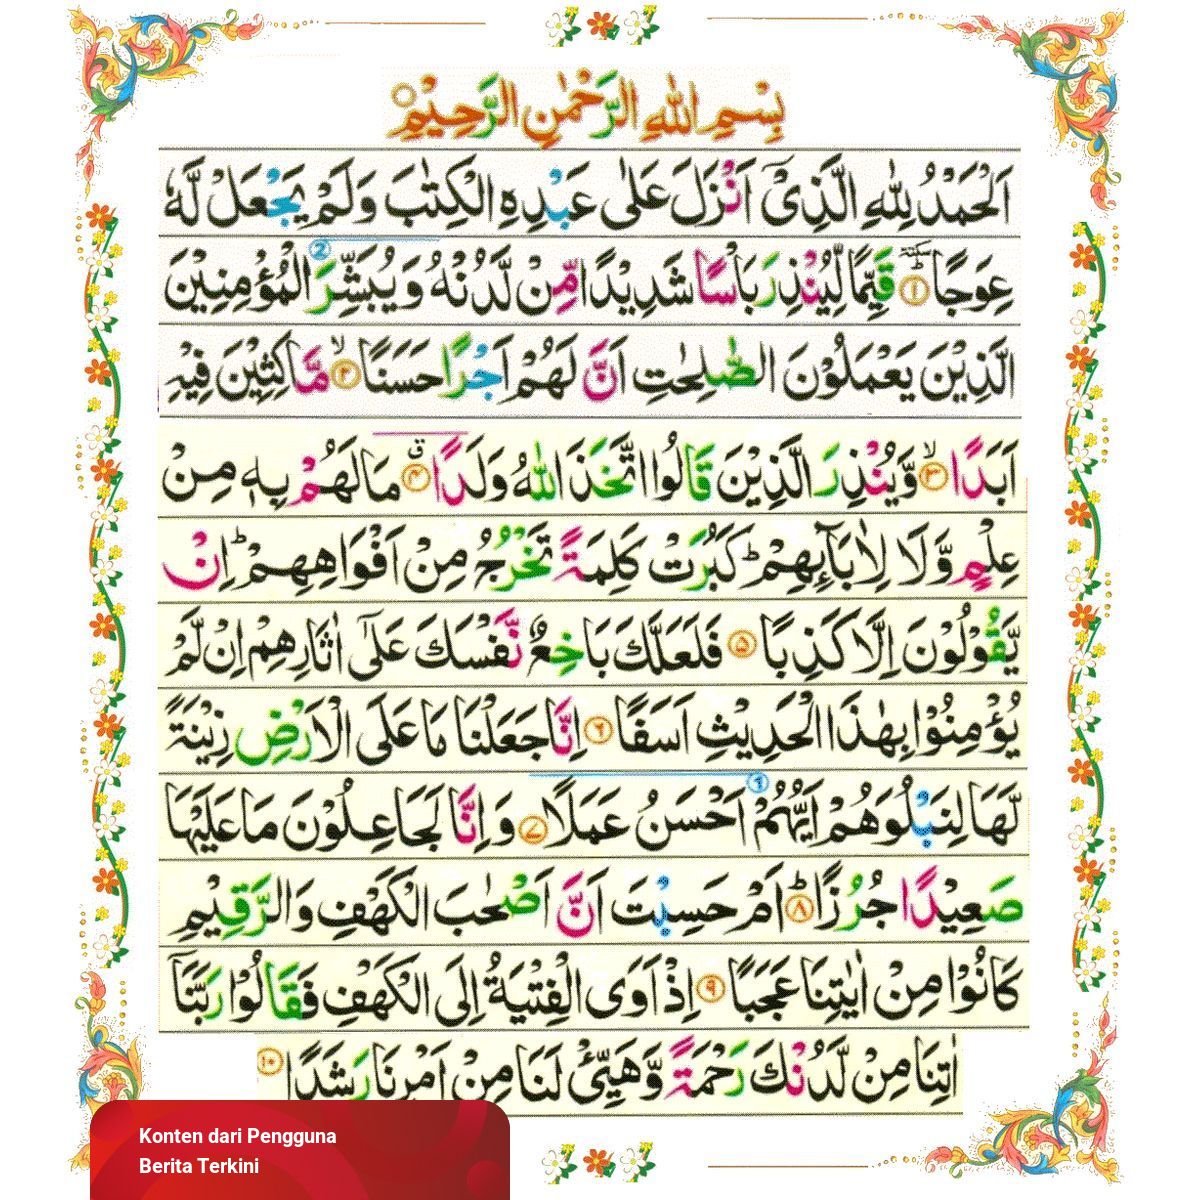 بِسْمِ اللهِ الرَّحْمٰنِ الرَّحِيْمِ
اَلْحَمْدُ لِلّٰهِ الَّذِىْٓ اَنْزَلَ عَلٰى عَبْدِهِ الْكِتٰبَ وَلَمْ يَجْعَلْ لَّهٗ
عِوَجًا سكتة ۱ قَيِّمًا لِّيُنْذِرَ بَاْسًا شَدِيْدًا مِّنْ لَّدُنْهُ وَ يُبَشِّرَ ② الْمُؤْمِنِيْنَ
الَّذِيْنَ يَعْمَلُوْنَ الصّٰلِحٰتِ اَنَّ لَهُمْ اَجْرًا حَسَنًا ۙ ۲ مَّاكِثِيْنَ فِيْهِ
اَبَدًا ۙ ۳ وَّيُنْذِرَ الَّذِيْنَ قَالُوا اتَّخَذَ اللهُ وَلَدًا ق ۴ مَا لَهُمْ بِهٖ مِنْ
عِلْمٍ وَّلَا لِاٰبَآٮِٕهِمْ ؕ كَبُرَتْ كَلِمَةً تَخْرُجُ مِنْ اَفْوَاهِهِمْ ؕ اِنْ
يَّقُوْلُوْنَ اِلَّا كَذِبًا ۵ فَلَعَلَّكَ بَاخِعٌ نَّفْسَكَ عَلٰٓى اٰثَارِهِمْ اِنْ لَّمْ
يُؤْمِنُوْا بِهٰذَا الْحَدِيْثِ اَسَفًا ۶ اِنَّا جَعَلْنَا مَا عَلَى الْاَرْضِ زِيْنَةً
لَّهَا لِنَبْلُوَهُمْ اَيُّهُمْ ① اَحْسَنُ عَمَلًا ۷ وَ اِنَّا لَجَاعِلُوْنَ مَا عَلَيْهَا
صَعِيْدًا جُرُزًا ؕ ۸ اَمْ حَسِبْتَ اَنَّ اَصْحٰبَ الْكَهْفِ وَالرَّقِيْمِ
كَانُوْا مِنْ اٰيٰتِنَا عَجَبًا ۹ اِذْ اَوَى الْفِتْيَةُ اِلَى الْكَهْفِ فَقَالُوْا رَبَّنَآ
اٰتِنَا مِنْ لَّدُنْكَ رَحْمَةً وَّهَيِّئْ لَنَا مِنْ اَمْرِنَا رَشَدًا ۱۰
Konten dari Pengguna
Berita Terkini